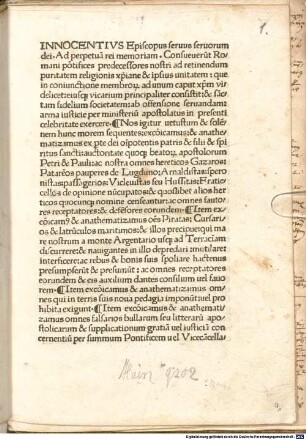 1.
INNOCENTIVS Episcopus seruus seruorum
dei. Ad perpetuā rei memoriam. Consueuerūt Ro
mani pōtifices predecessores nostri ad retinendum
puritatem religionis xp̄iane & ipsius unitatem: que
in coniunctione membroꝝ. ad unum caput xp̄m
videlicet eiusq̄ vicarium principaliter consistit: & sāc
tam fidelium societatem ab offensione seruandam
arma iusticie per ministeriū apostolatus in present
celebritate exercere. ¶Nos igitur uetustum & sole
nem hunc morem sequentes excōicamus: & anathe
matizamus ex pte dei oīpotentis patris & filii & spi
ritus sancti auctoritate quoq; beatoꝝ. apostolorum
Petri & Pauli ac nostra omnes hereticos Gazaros:
Patarēos pauperes de Lugduno: Arnaldistas: spero
nistas: passagerios: Vicleuistas seu Hussitas: Fratri
cellos de opinione nūcupatos: & quoslibet alios her
eticos quocunq; nomine censeantur: ac omnes fauto
res receptatores: & defēsores eorundem ¶Item ex
cōicam⁹ & anathematizamus oēs Piratas: Cursarios
& latrūculos maritimos: & illos precipue qui ma
re nostrum a monte Argentario usq; ad Terraciam
discurrere: & nauigantes in illo depredari mutilare
interficere: ac rebus & bonis suis spoliare hactenus
presumpserūt & presumūt: ac omnes receptatores
eorundem & eis auxilium dantes consilium uel fauo
rem ¶Item excōicamus & anathematizamus om
nes qui in terris suis noua pedagia imponūt uel pro
hibita exigunt ¶Item excōicamus & anathemati
zamus omnes falsarios bullarum seu litterarū apo
stolicarum & supplicationum gratiā uel iusticiā con
cernentiū per summum Pontificem uel Vicecācella
Hain 9202